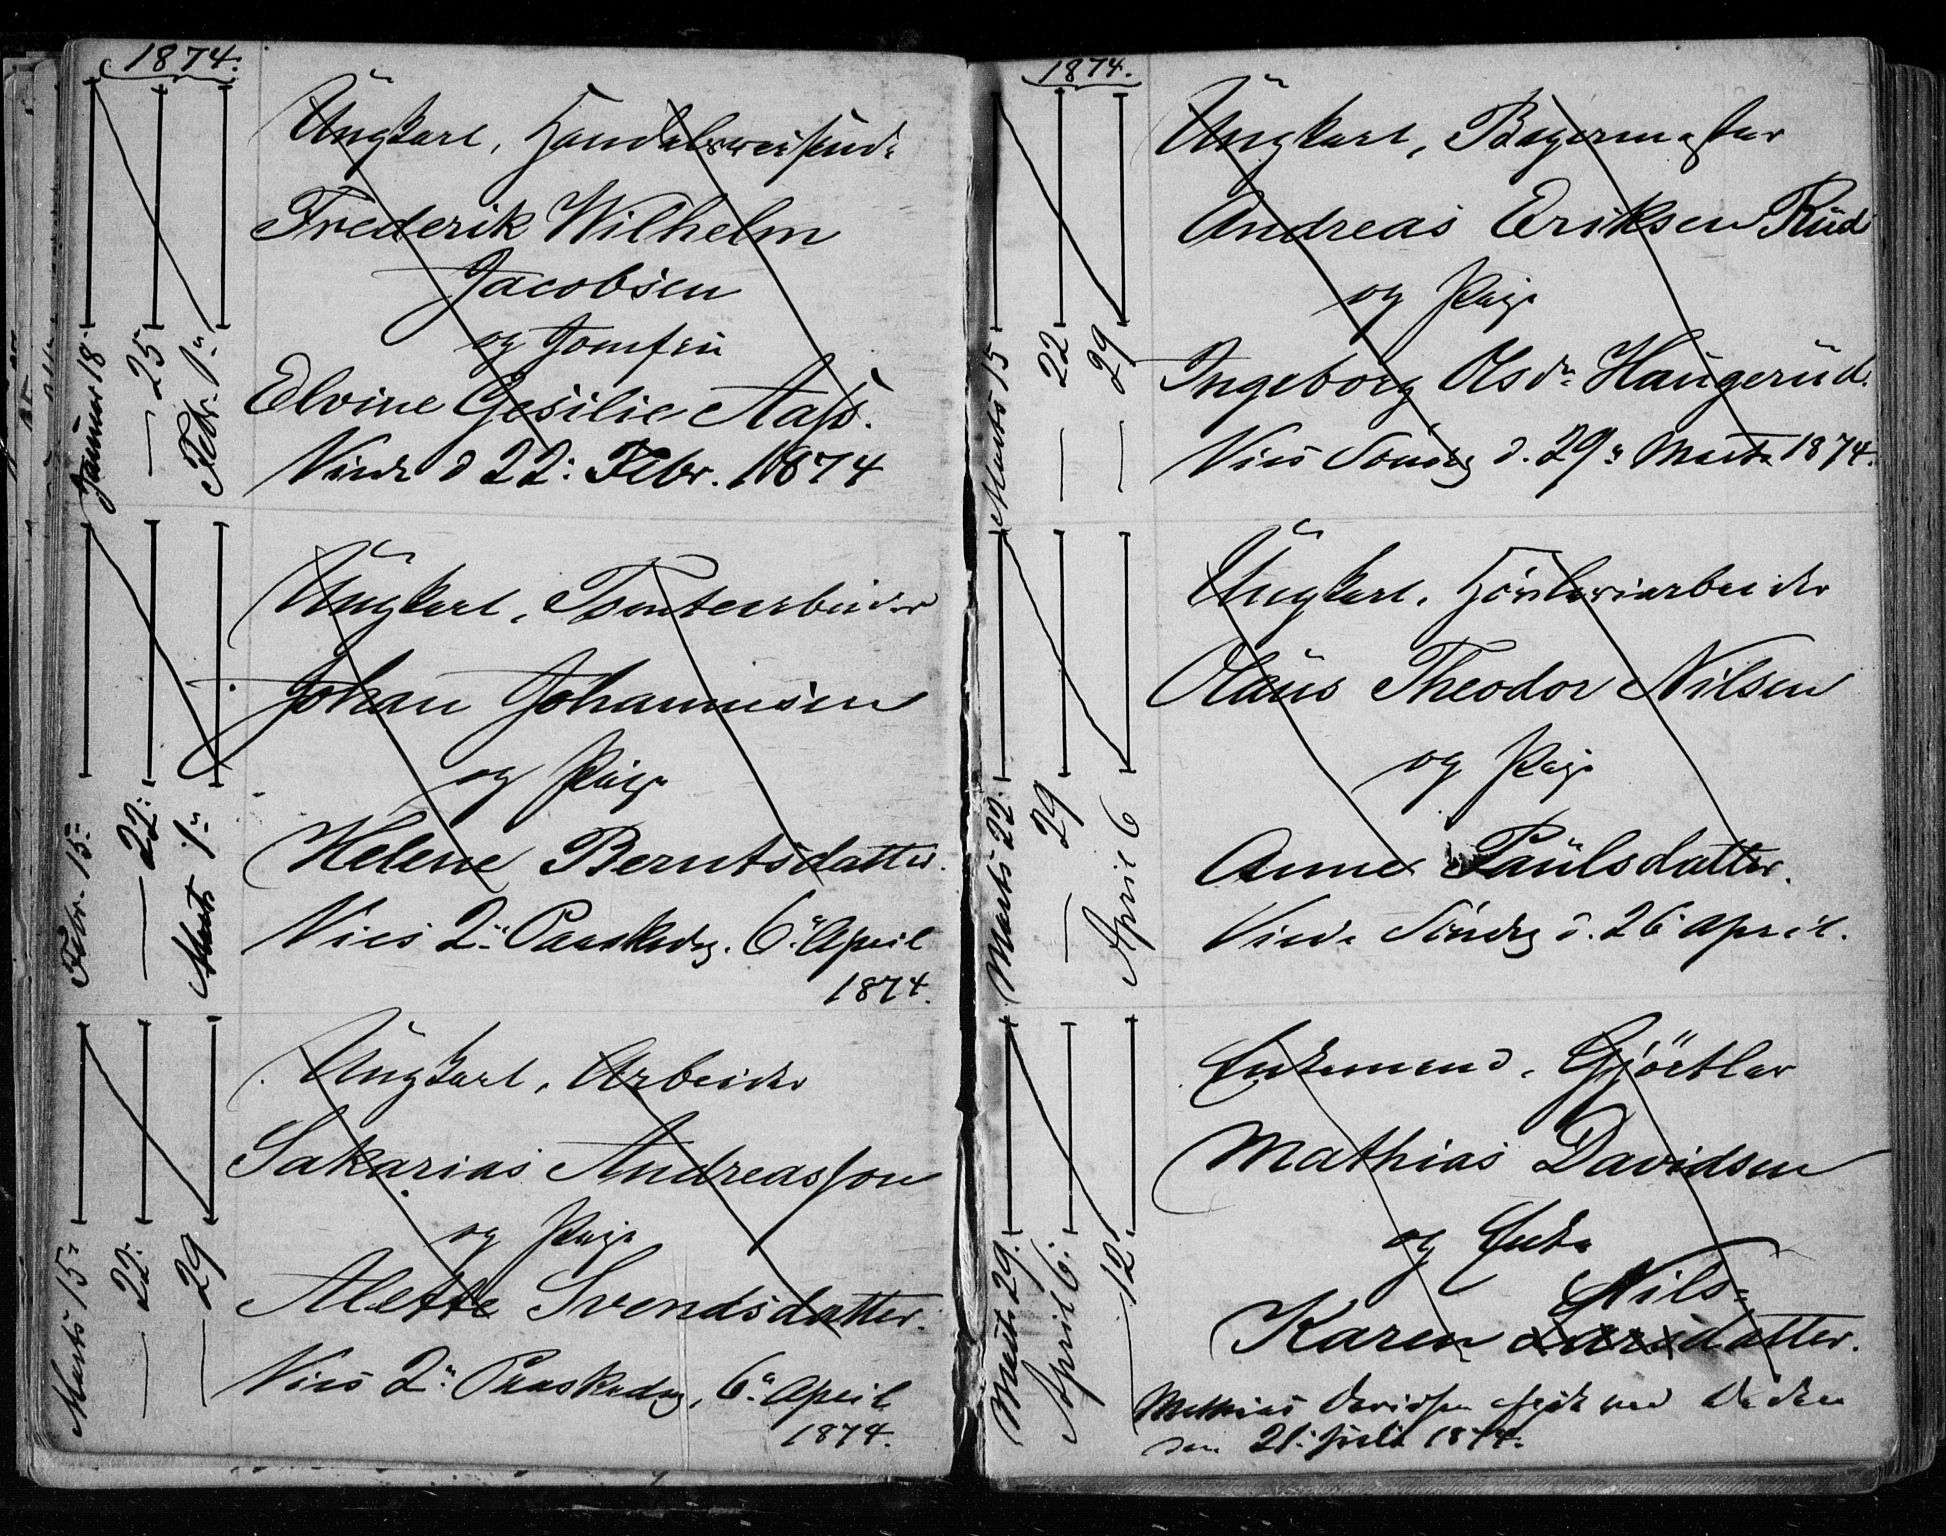 1874.
Januar 18
— 25
Febr. 1ste
Ungkarl, Handelsreisende
Frederik Wilhelm
Jacobsen
og Jomfru
Elvine Gesilie Aass.
Viede d 22: Febr. 1874
Febr. 15:
— 22:
Marts 1ste
Ungkarl, Tomtearbeider
Johan Johannesen
og Pige
Helene Berntsdatter.
Vies 2den Paaskedag. 6te April
1874.
Marts 15
— 22:
— 29
Ungkarl, Arbeider
Sakarias Andreasson
og Pige
Alette Svendsdatter.
Vies 2den Paaskedag, 6te April
1874.
1874.
Marts 15
— 22
— 29
Ungkarl, Bagermester
Andreas Eriksen Ruud
og Pige
Ingeborg Olsdr Haugerud.
Vies Söndag d. 29de Marts 1874.
Marts 22:
— 29
April 6
Ungkarl, Hövleriarbeider
Olaus Theodor Nilsen
og Pige
Anne Paulsdatter.
Viede Söndag d. 26 April.
Marts 29.
April 6:
— 12.
Enkemand, Gjörtler
Mathias Davidsen
og Enke
Nils=
Karen Larsdatter.
Mathias Davidsen afgik ved Döden
den 21: Juli 1874.